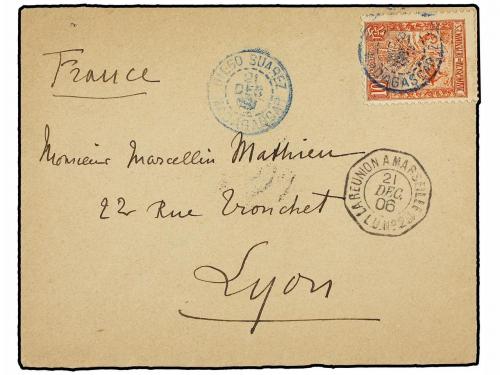 France
DIEGO SUAREZ
21
DEC
MADAGASCAR
Monsieur Marcellin Mathieu
22 Rue Tronchet
Lyon
LA REUNION A MARSEILLE
21
DEC.
06
L.U.Nº2